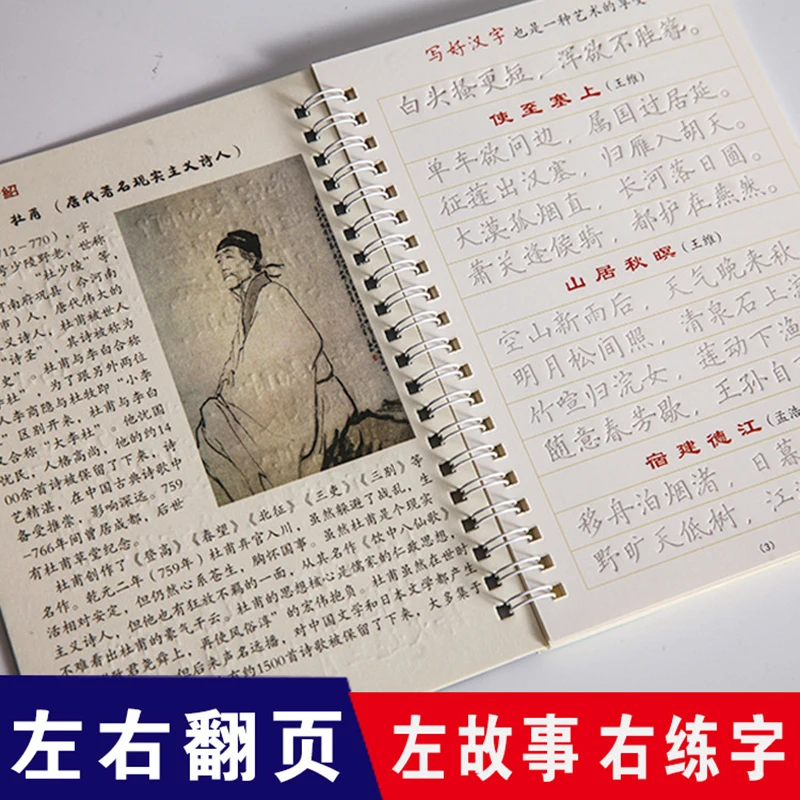 绍
杜甫（唐代著名现实主义诗人）
712-770），字
号少陵野老，世称
"、"杜少陵"等，
河南府巩县（今河南
市）人，唐代伟大的
义诗人，杜甫被世人
"诗圣"，其诗被称为
史"。杜甫与李白合称
李杜"，为了跟另外两位
人李商隐与杜牧即"小李
"区别开来，杜甫与李白
又合称"大李杜"。他忧国
忧民，人格高尚，他的约14
00余首诗被保留了下来，诗
艺精湛，在中国古典诗歌中
备受推崇，影响深远。759
-766年间曾居成都，后世
有杜甫草堂纪念。
杜甫创作了《登高》《春望》《北征》《三吏》《三别》等
名作。乾元二年（759年）杜甫弃官入川，虽然躲避了战乱，生
活相对安定，但仍然心系苍生，胸怀国事。虽然杜甫是个现实
主义诗人，但他也有狂放不羁的一面，从其名作《饮中八仙歌》
不难看出杜甫的豪气干云。杜甫的思想核心是儒家的仁政思想，
致君尧舜上，再使风俗淳"的宏伟抱负。杜甫虽然在世时
但后来声名远播，对中国文学和日本文学都产生
有约1500首诗歌被保留了下来，大多集于
写好汉字 也是一种艺术的享受
白头搔更短，浑欲不胜簪。
使至塞上（王维）
单车欲问边，属国过居延。
征蓬出汉塞，归雁入胡天。
大漠孤烟直，长河落日圆。
萧关逢候骑，都护在燕然。
山居秋暝（王维）
空山新雨后，天气晚来秋
明月松间照，清泉石上流
竹喧归浣女，莲动下渔
随意春芳歇，王孙自
宿建德江（孟浩
移舟泊烟渚，日暮
野旷天低树，江
(3)
左右翻页
左故事 右练字